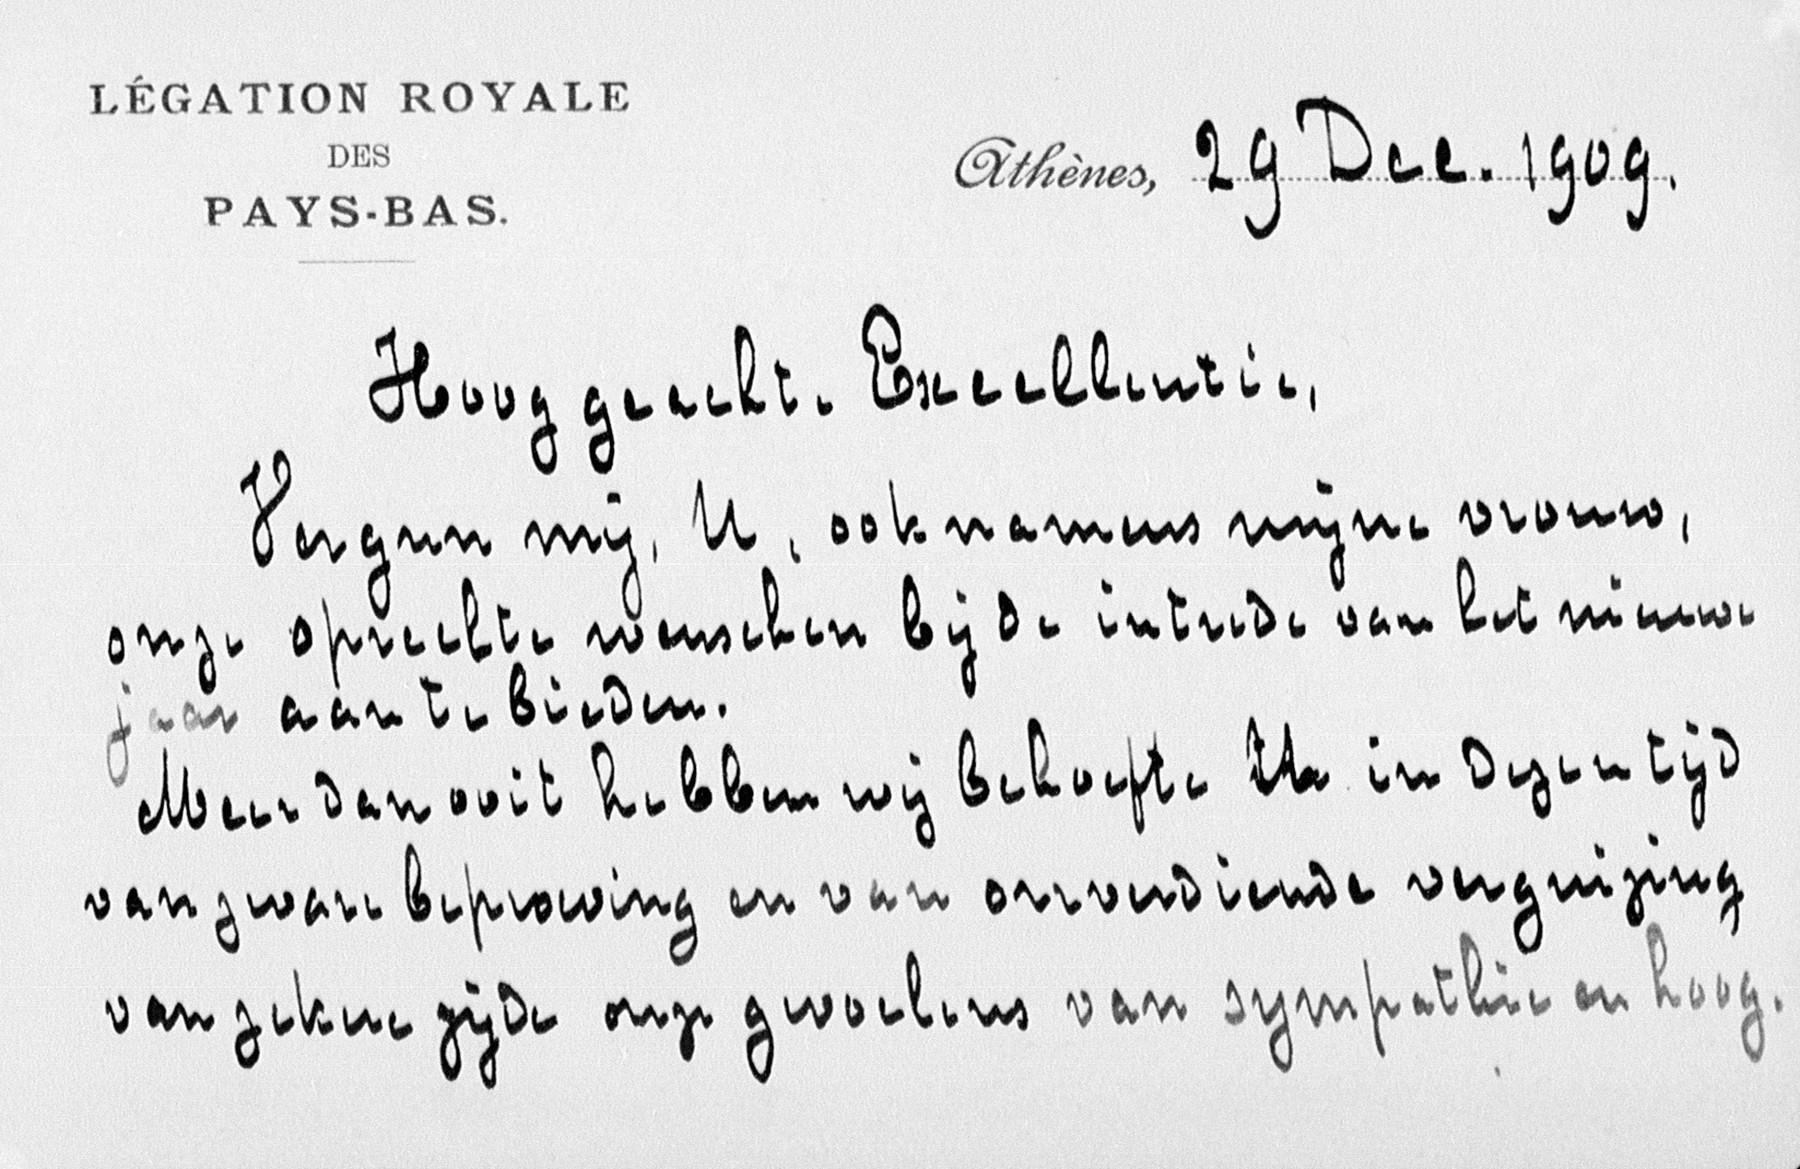 LÉGATION ROYALE
DES
PAYS-BAS.
Athènes, 29 Dec. 1909.
Hooggeachte Excellentie,
Vergun mij, U, ook namens mijne vrouw,
onze oprechte wenschen bij de intrede van het nieuwe
jaar aan te bieden.
Meer dan ooit hebben wij behoefte U in dezen tijd
van zware beproeving en van onverdiende verguizing
van zekere zijde onze gevoelens van sympathie en hoog.